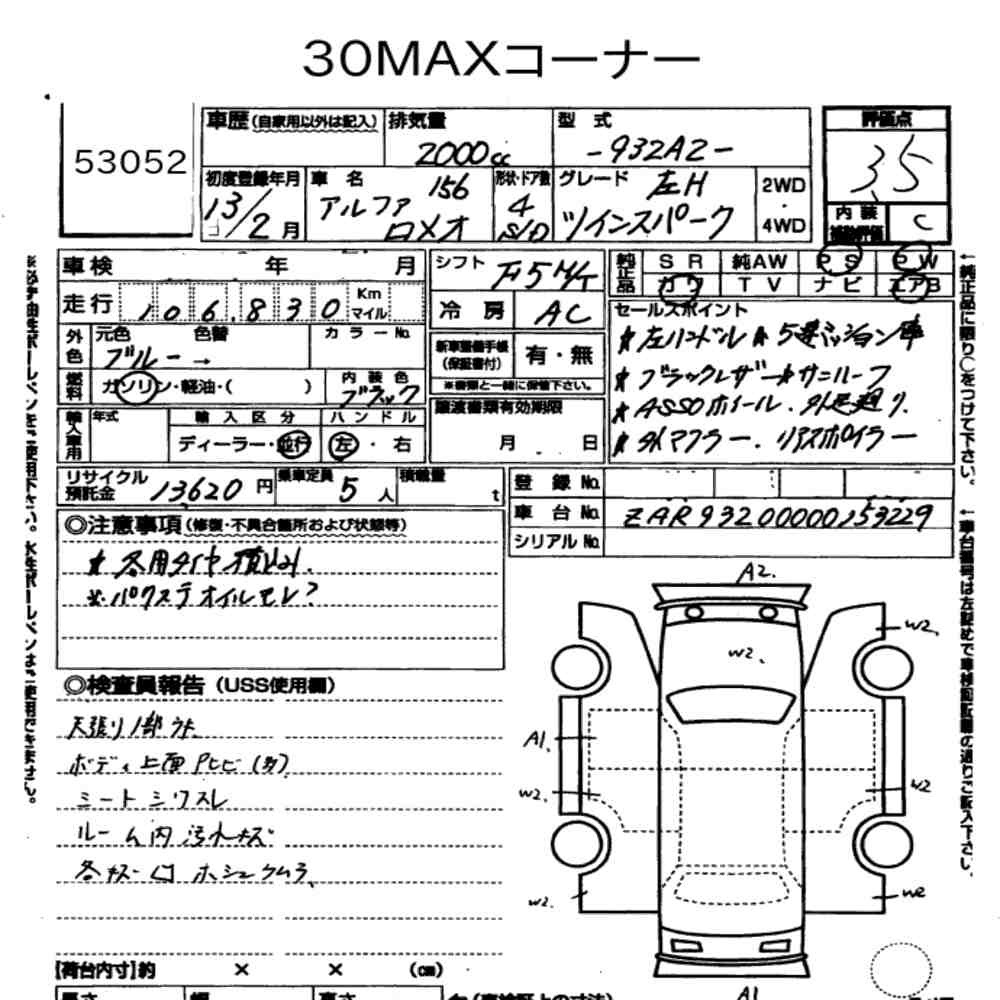 30MAXコーナー
53052
車歴 (自家用以外は記入)
排気量
2000cc
型式
-932A2-
評価点
3.5
内装
補助評価
C
初度登録年月
13/2月
車名
アルファ 156
ロメオ
形状・ドア数
4
S/D
グレード 左H
ツインスパーク
2WD
・
4WD
車検 年 月
走行 106,830 Km
マイル
シフト F5MT
冷房 AC
純正品
SR 純AW PS PW
カワ TV ナビ エアB
外色
元色 色替 カラーNo.
ブルー →
燃料
ガソリン・軽油・( )
内装色
ブラック
新車整備手帳
(保証書付)
有・無
※書類と一緒に保管下さい。
セールスポイント
★左ハンドル ★5速ミッション車
★ブラックレザー★サンルーフ
★ASSOホイール. 外足廻り.
★外マフラー. リアスポイラー
輸入車用
年式 輸入区分 ハンドル
ディーラー・並行 左・右
譲渡書類有効期限
月 日
リサイクル
預託金
13620円
乗車定員
5人
積載量
t
登録No.
車台No. ZAR93200000153229
シリアルNo.
◎注意事項(修復・不具合箇所および状態等)
★冬用タイヤ積込み.
※パワステオイルモレ?
◎検査員報告 (USS使用欄)
天張り1部ウキ
ボディ上面 Pヒビ(多)
シートシワスレ
ルーム内汚れキズ
各キズ・凹 ホシュウムラ
A2.
W2.
W2.
A1.
W2.
W2
W2.
W2
A1
【荷台内寸】約 × × (cm)
長さ 幅 高さ
※必ず油性ボールペンをご使用下さい。水性ボールペンはご使用できません。
↑純正品に限り○をつけて下さい。
↑車台番号は左詰めで車検証記載の通りご記入下さい。